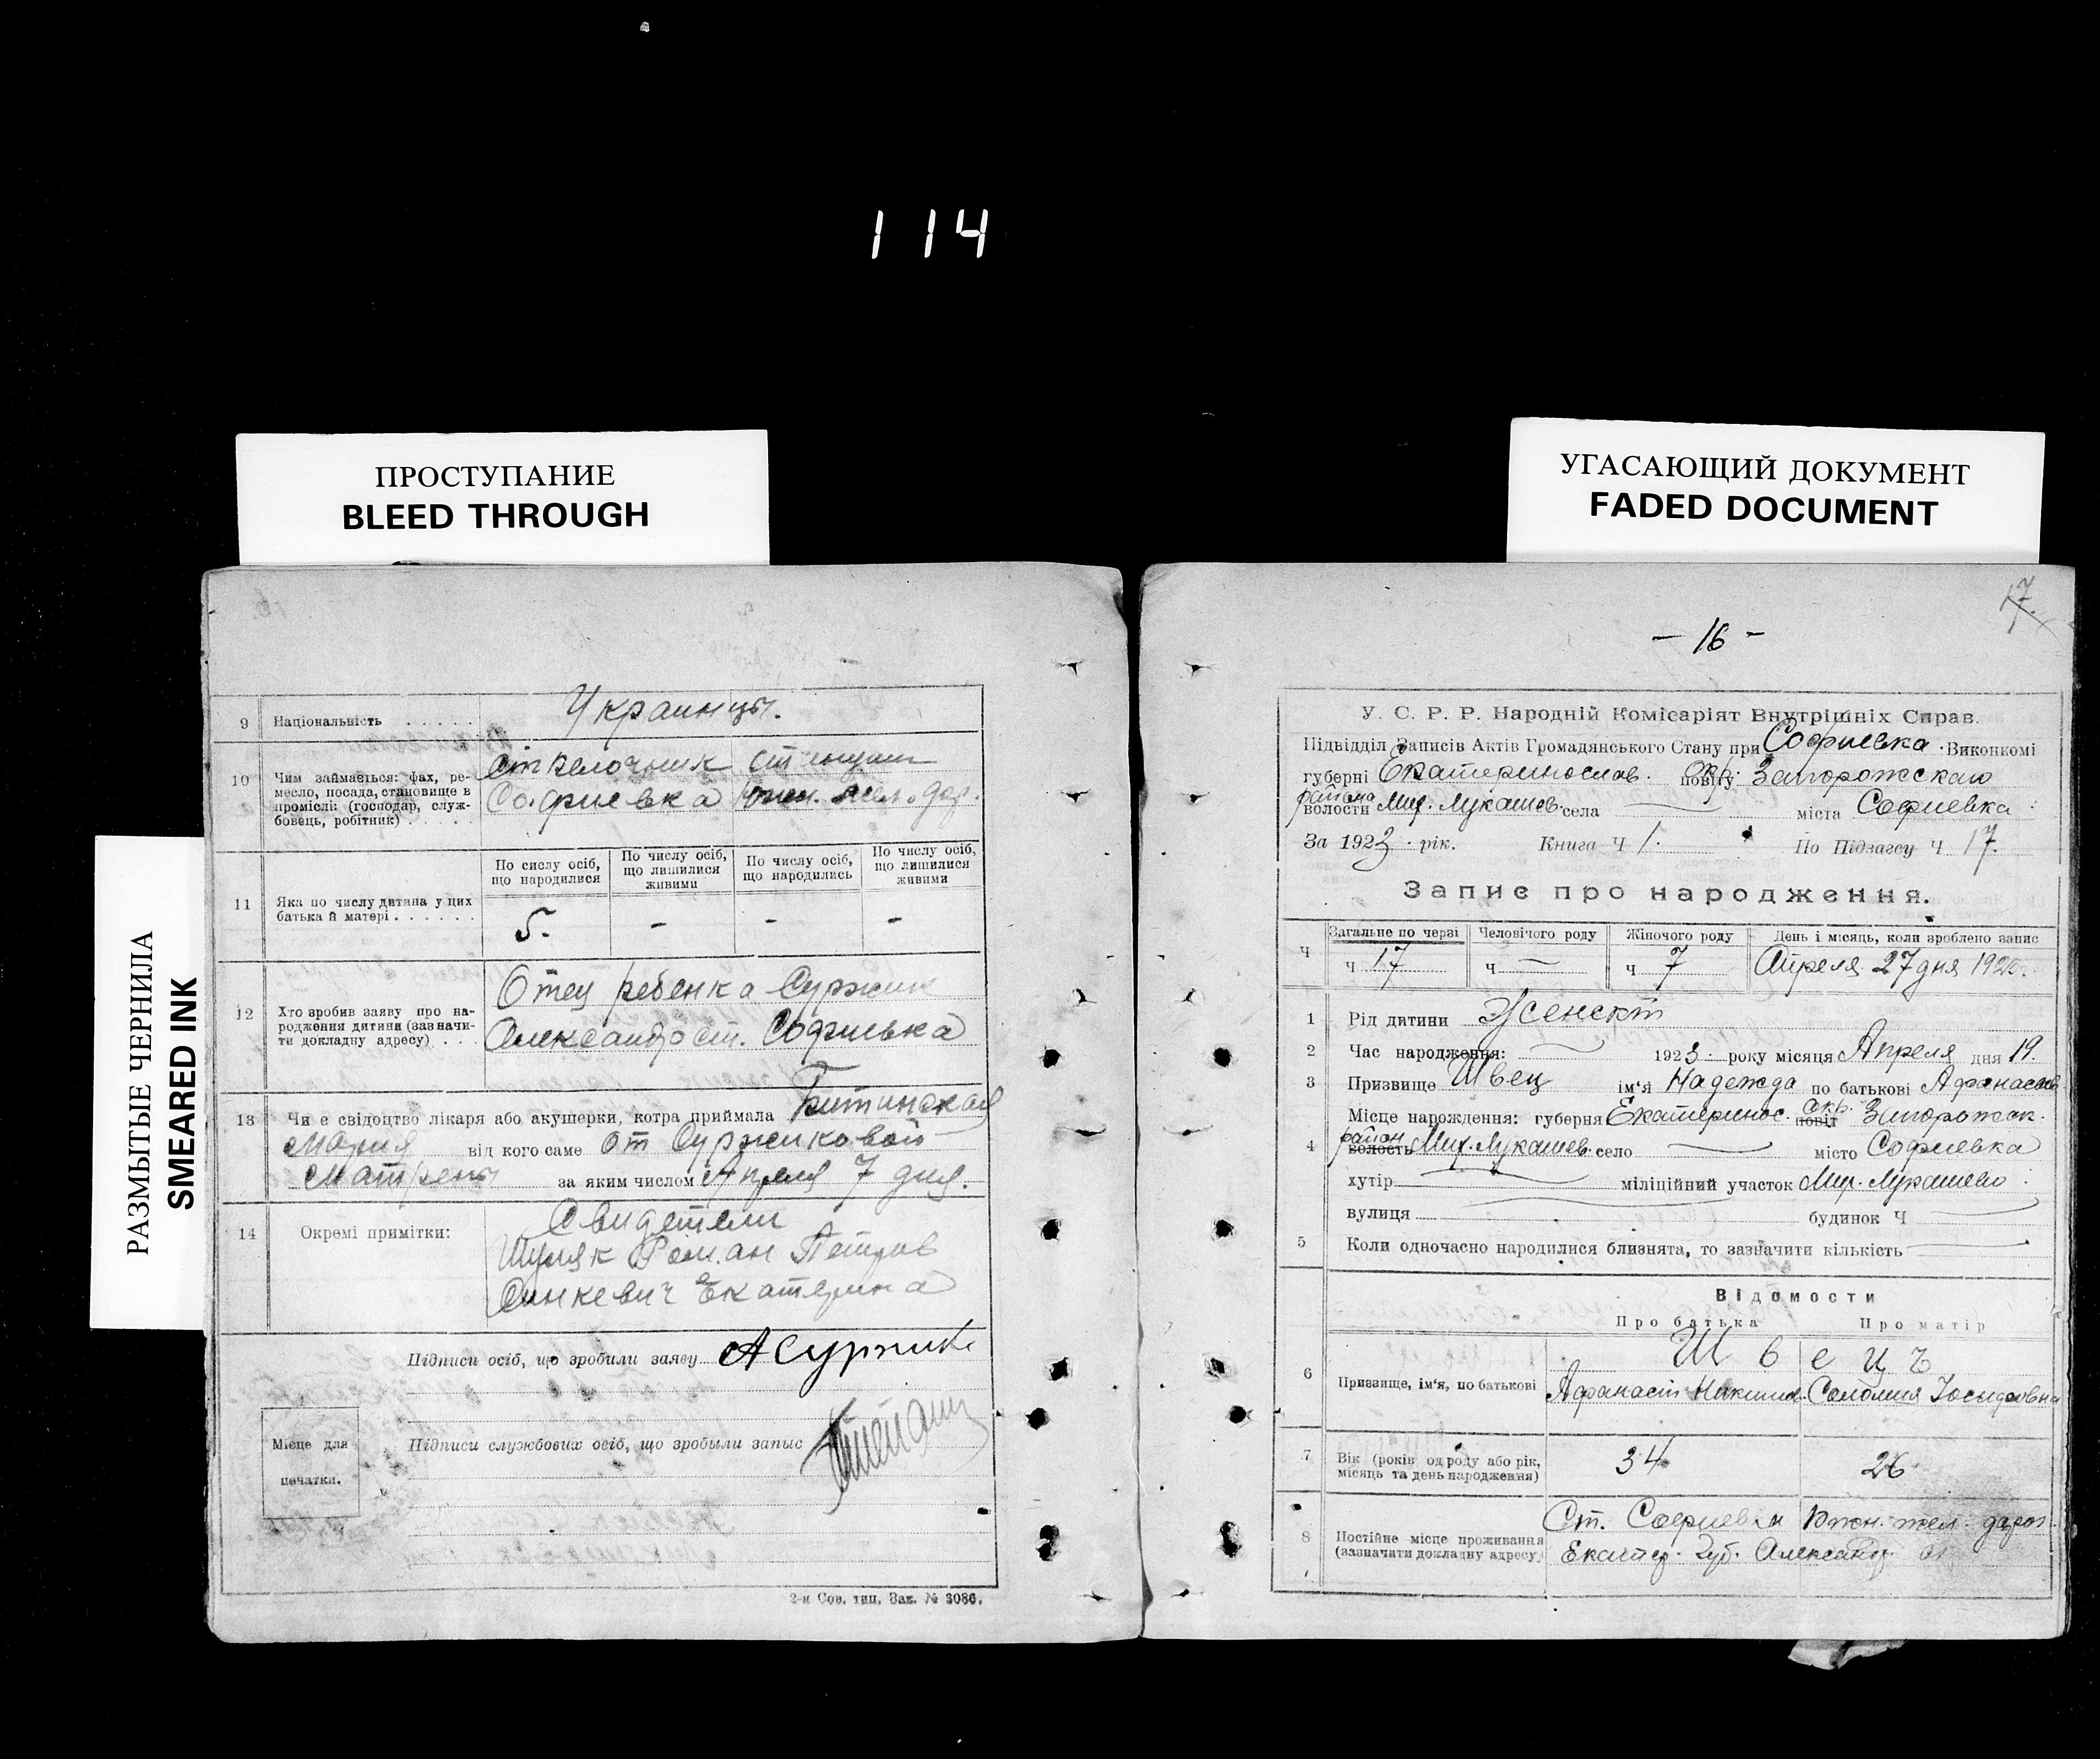 114
ПРОСТУПАНИЕ
BLEED THROUGH
УГАСАЮЩИЙ ДОКУМЕНТ
FADED DOCUMENT
РАЗМЫТЫЕ ЧЕРНИЛА
SMEARED INK
9 Національність . . . . . Украинцы.
10 Чим займається: фах, ре-
месло, посада, становище в
промислі: (господар, служ-
бовець, робітник) . . . .
Стрелочник станции
Софиевка Южн. жел. дор.
11 Яка по числу дитина у цих
батька й матері . . . . . .
По сислу осіб,
що народилися
По числу осіб,
що лишилися
живими
По числу осіб,
що народились
По числу осіб,
що лишилися
живими
5. - - -
12 Хто зробив заяву про на-
родження дитини (зазначи-
ти докладну адресу) . . .
Отец ребенка Суржик
Александр ст. Софиевка
13 Чи є свідоцтво лікаря або акушерки, котра приймала
Мария від кого саме от Суржиковой
Матрены за яким числом Апреля 7 дня.
14 Окремі примітки:
Свидетели
Шуляк Роман Петров
Синкевич Екатерина
Підписи осіб, що зробили заяву А Суржик
Підписи службових осіб, що зробыли запыс
Місце для
печатки.
2-я Сов. тип. Зак. № 3086.
17.
- 16 -
У. С. Р. Р. Народній Комісаріят Внутрішніх Справ.
Підвідділ Записів Актів Громадянського Стану при Софиевка Виконкомі
губерні Екатеринослав. повіту Окр. Запорожскаю
района
волости Мих. Лукашев. села — міста Софиевка
За 1923 рік. Книга Ч 1. По Підзагсу Ч 17.
Запис про народження.
Ч Загальне по черзі Человічого роду Жіночого роду День і місяць, коли зроблено запис
ч 17 ч — ч 7 Апреля 27 дня
1 Рід дитини Женскт
2 Час народження: — 1923 року місяця Апреля дня 19.
3 Призвище Швец ім'я Надежда по батькові Афанасьев
4 Місце народження: губерня Екатеринос. повіт окр. Запорожск.
район
волость Мих. Лукашев. село — місто Софиевка
хутір — міліційний участок Мих. Лукашево
вулиця — будинок Ч —
5 Коли одночасно народилися близнята, то зазначити кількість —
Відомости
Про батька Про матір
6 Призвище, ім'я, по батькові
Швецъ
Афанасій Никит. Соломия Іосифовна
7 Вік (років од роду або рік,
місяць та день народження)
34 26
8 Постійне місце проживання
(зазначити докладну адресу)
Ст. Софиевки Южн. жел. дорог.
Екатер. Губ. Александр.